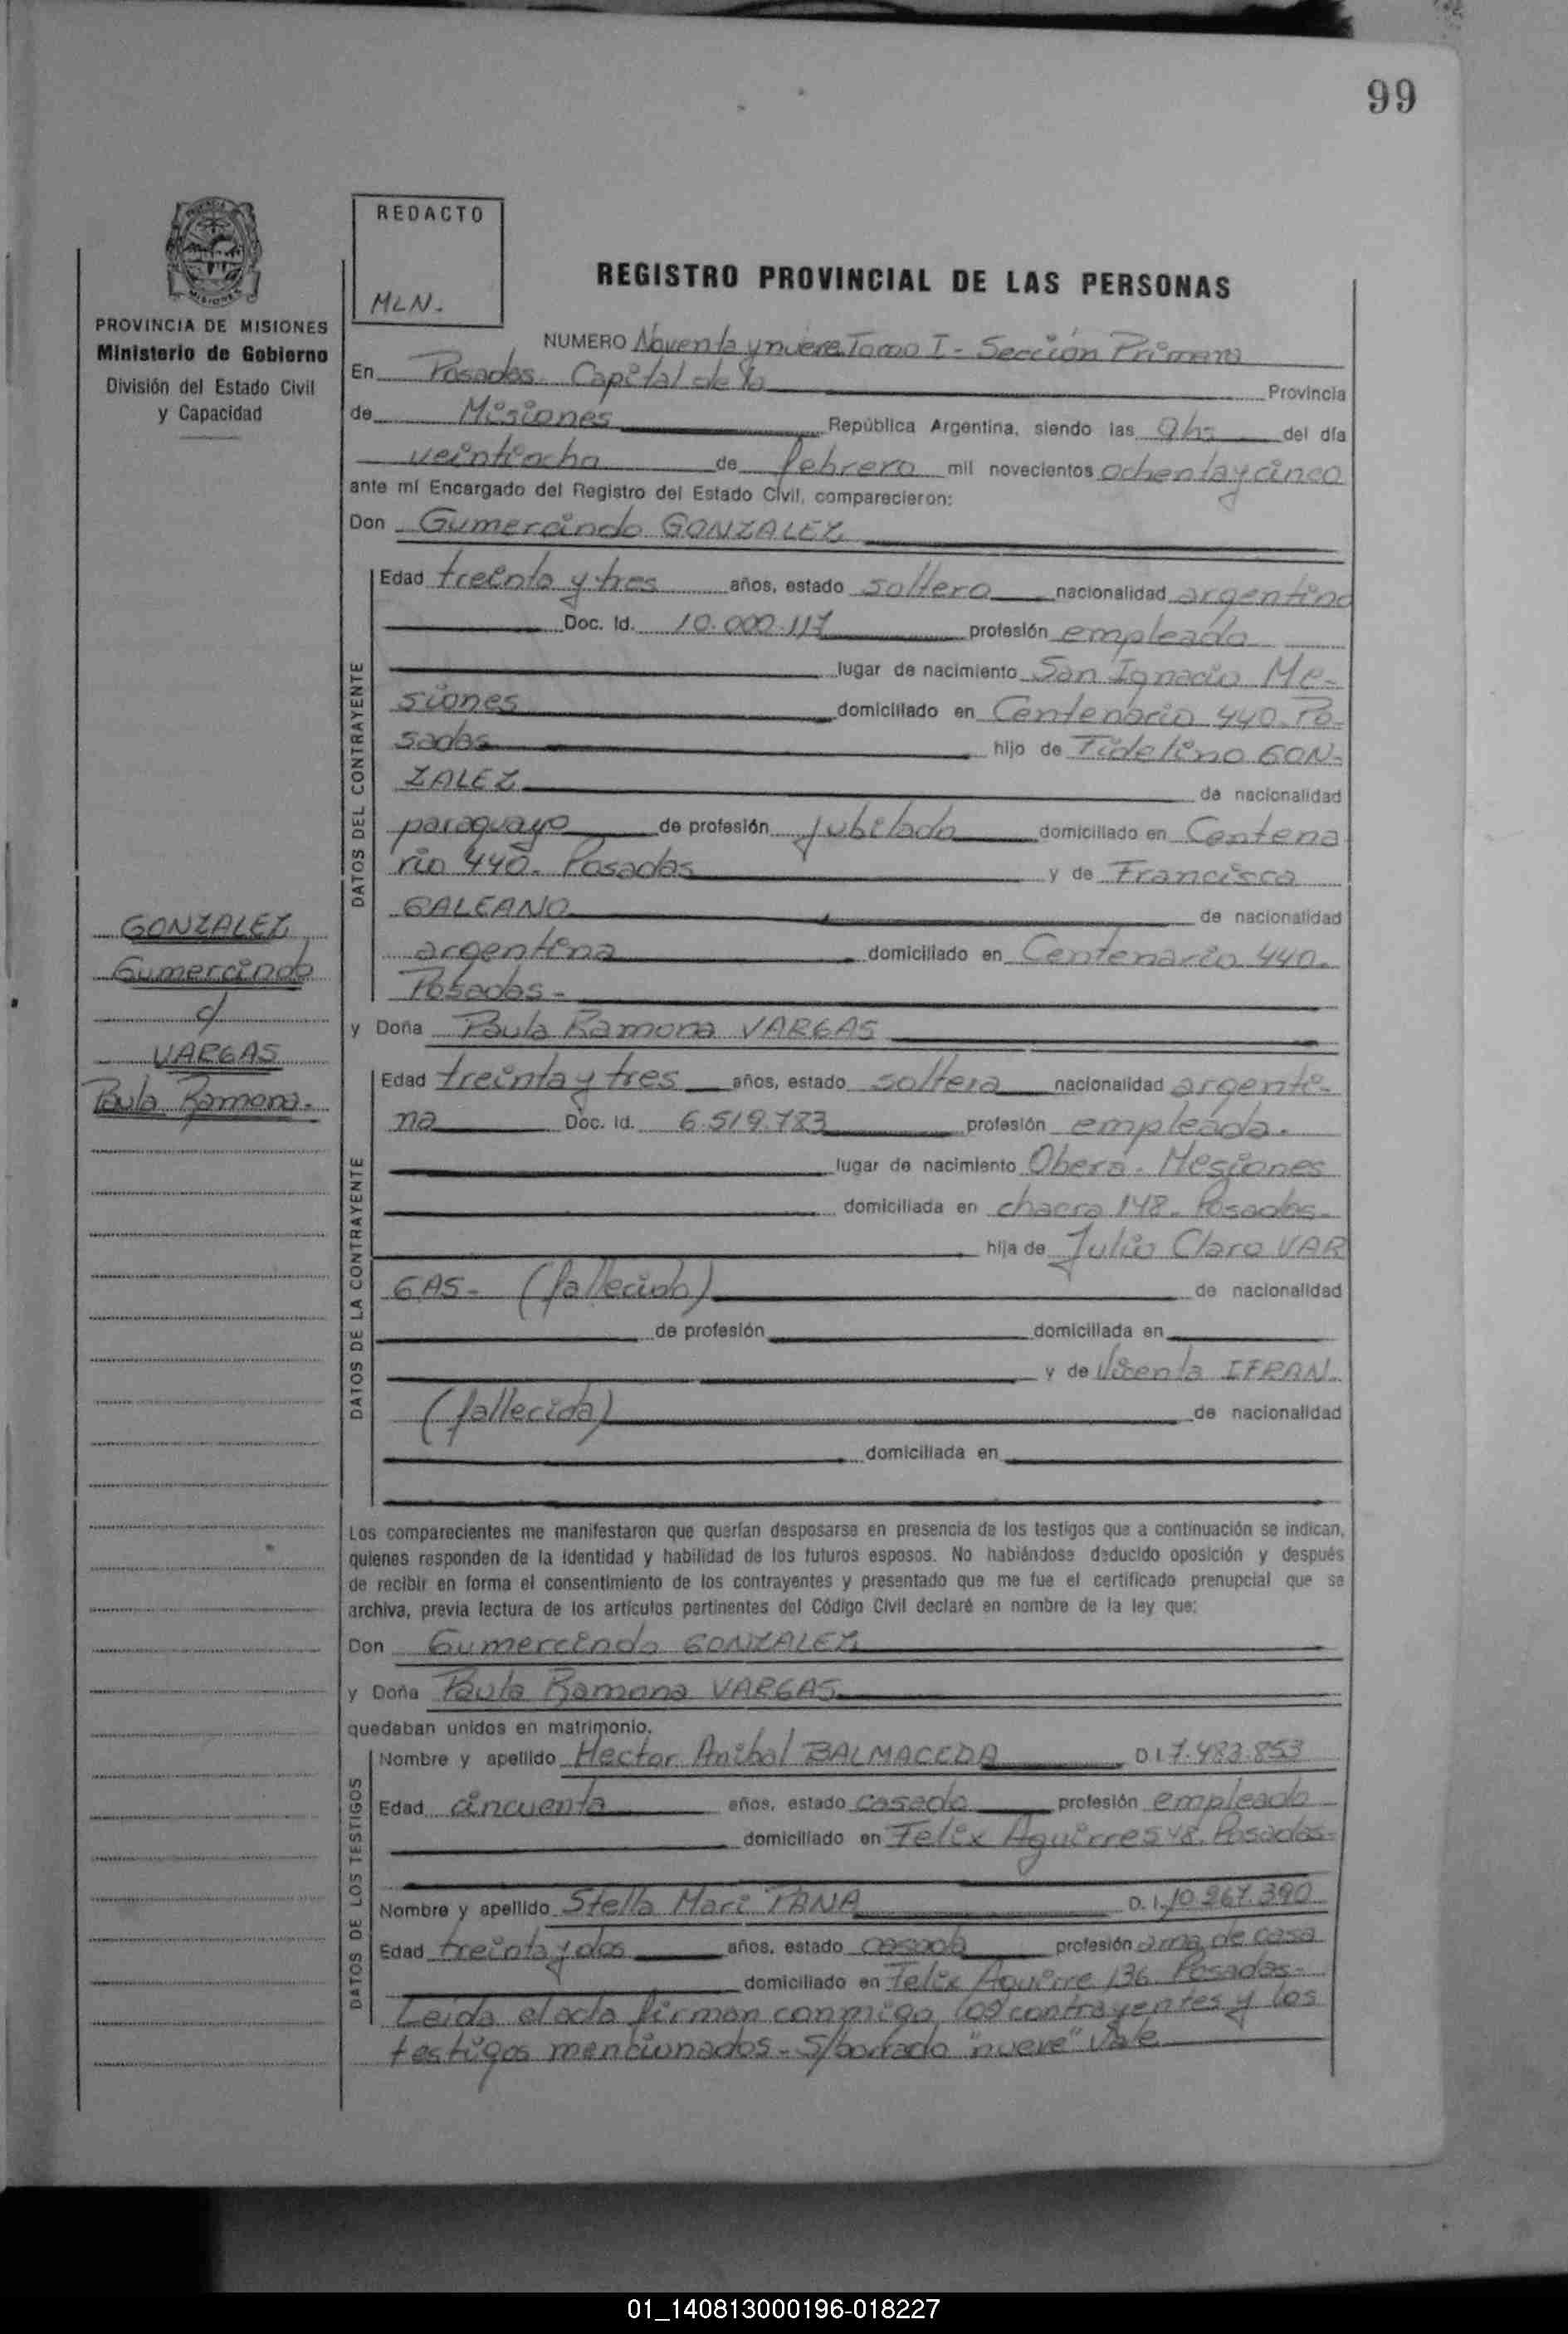 99
REDACTO
MLN.
REGISTRO PROVINCIAL DE LAS PERSONAS
PROVINCIA DE MISIONES
Ministerio de Gobierno
División del Estado Civil
y Capacidad
NUMERO Noventa y nueve Tomo I - Sección Primera
En Posadas Capital de la Provincia
de Misiones República Argentina, siendo las 9hs del día
veintiocho de febrero mil novecientos ochenta y cinco
ante mí Encargado del Registro del Estado Civil, comparecieron:
Don Gumercindo GONZALEZ
DATOS DEL CONTRAYENTE
Edad treinta y tres años, estado soltero nacionalidad argentino
Doc. Id. 10.000.117 profesión empleado
lugar de nacimiento San Ignacio Mi-
siones domiciliado en Centenario 440. Po-
sadas hijo de Fidelino GON-
ZALEZ de nacionalidad
paraguayo de profesión jubilado domiciliado en Centena
rio 440. Posadas y de Francisca
GALEANO de nacionalidad
argentina domiciliado en Centenario 440.
Posadas -
GONZALEZ
Gumercindo
c/
VARGAS
Paula Ramona.
y Doña Paula Ramona VARGAS
DATOS DE LA CONTRAYENTE
Edad treinta y tres años, estado soltera nacionalidad argenti-
na Doc. Id. 6.519.783 profesión empleada.
lugar de nacimiento Obera. Misiones
domiciliada en chacra 148. Posadas-
hija de Julio Claro VAR
GAS- (fallecido) de nacionalidad
de profesión domiciliada en
y de Vicenta IFRAN.
(fallecida) de nacionalidad
domiciliada en
Los comparecientes me manifestaron que querían desposarse en presencia de los testigos que a continuación se indican,
quienes responden de la identidad y habilidad de los futuros esposos. No habiéndose deducido oposición y después
de recibir en forma el consentimiento de los contrayentes y presentado que me fue el certificado prenupcial que se
archiva, previa lectura de los artículos pertinentes del Código Civil declaré en nombre de la ley que:
Don Gumercindo GONZALEZ
y Doña Paula Ramona VARGAS
quedaban unidos en matrimonio.
DATOS DE LOS TESTIGOS
Nombre y apellido Hector Anibal BALMACEDA D I 7.483.853
Edad cincuenta años, estado casado profesión empleado
domiciliado en Felix Aguirre 548. Posadas-
Nombre y apellido Stella Mari D. I. 10.267.390
Edad treinta y dos años, estado casada profesión ama de casa
domiciliado en Felix Aguirre 136 Posadas-
Leida el acta firman conmigo los contrayentes y los
testigos mencionados - S/borrado "nueve" Vale
01_140813000196-018227